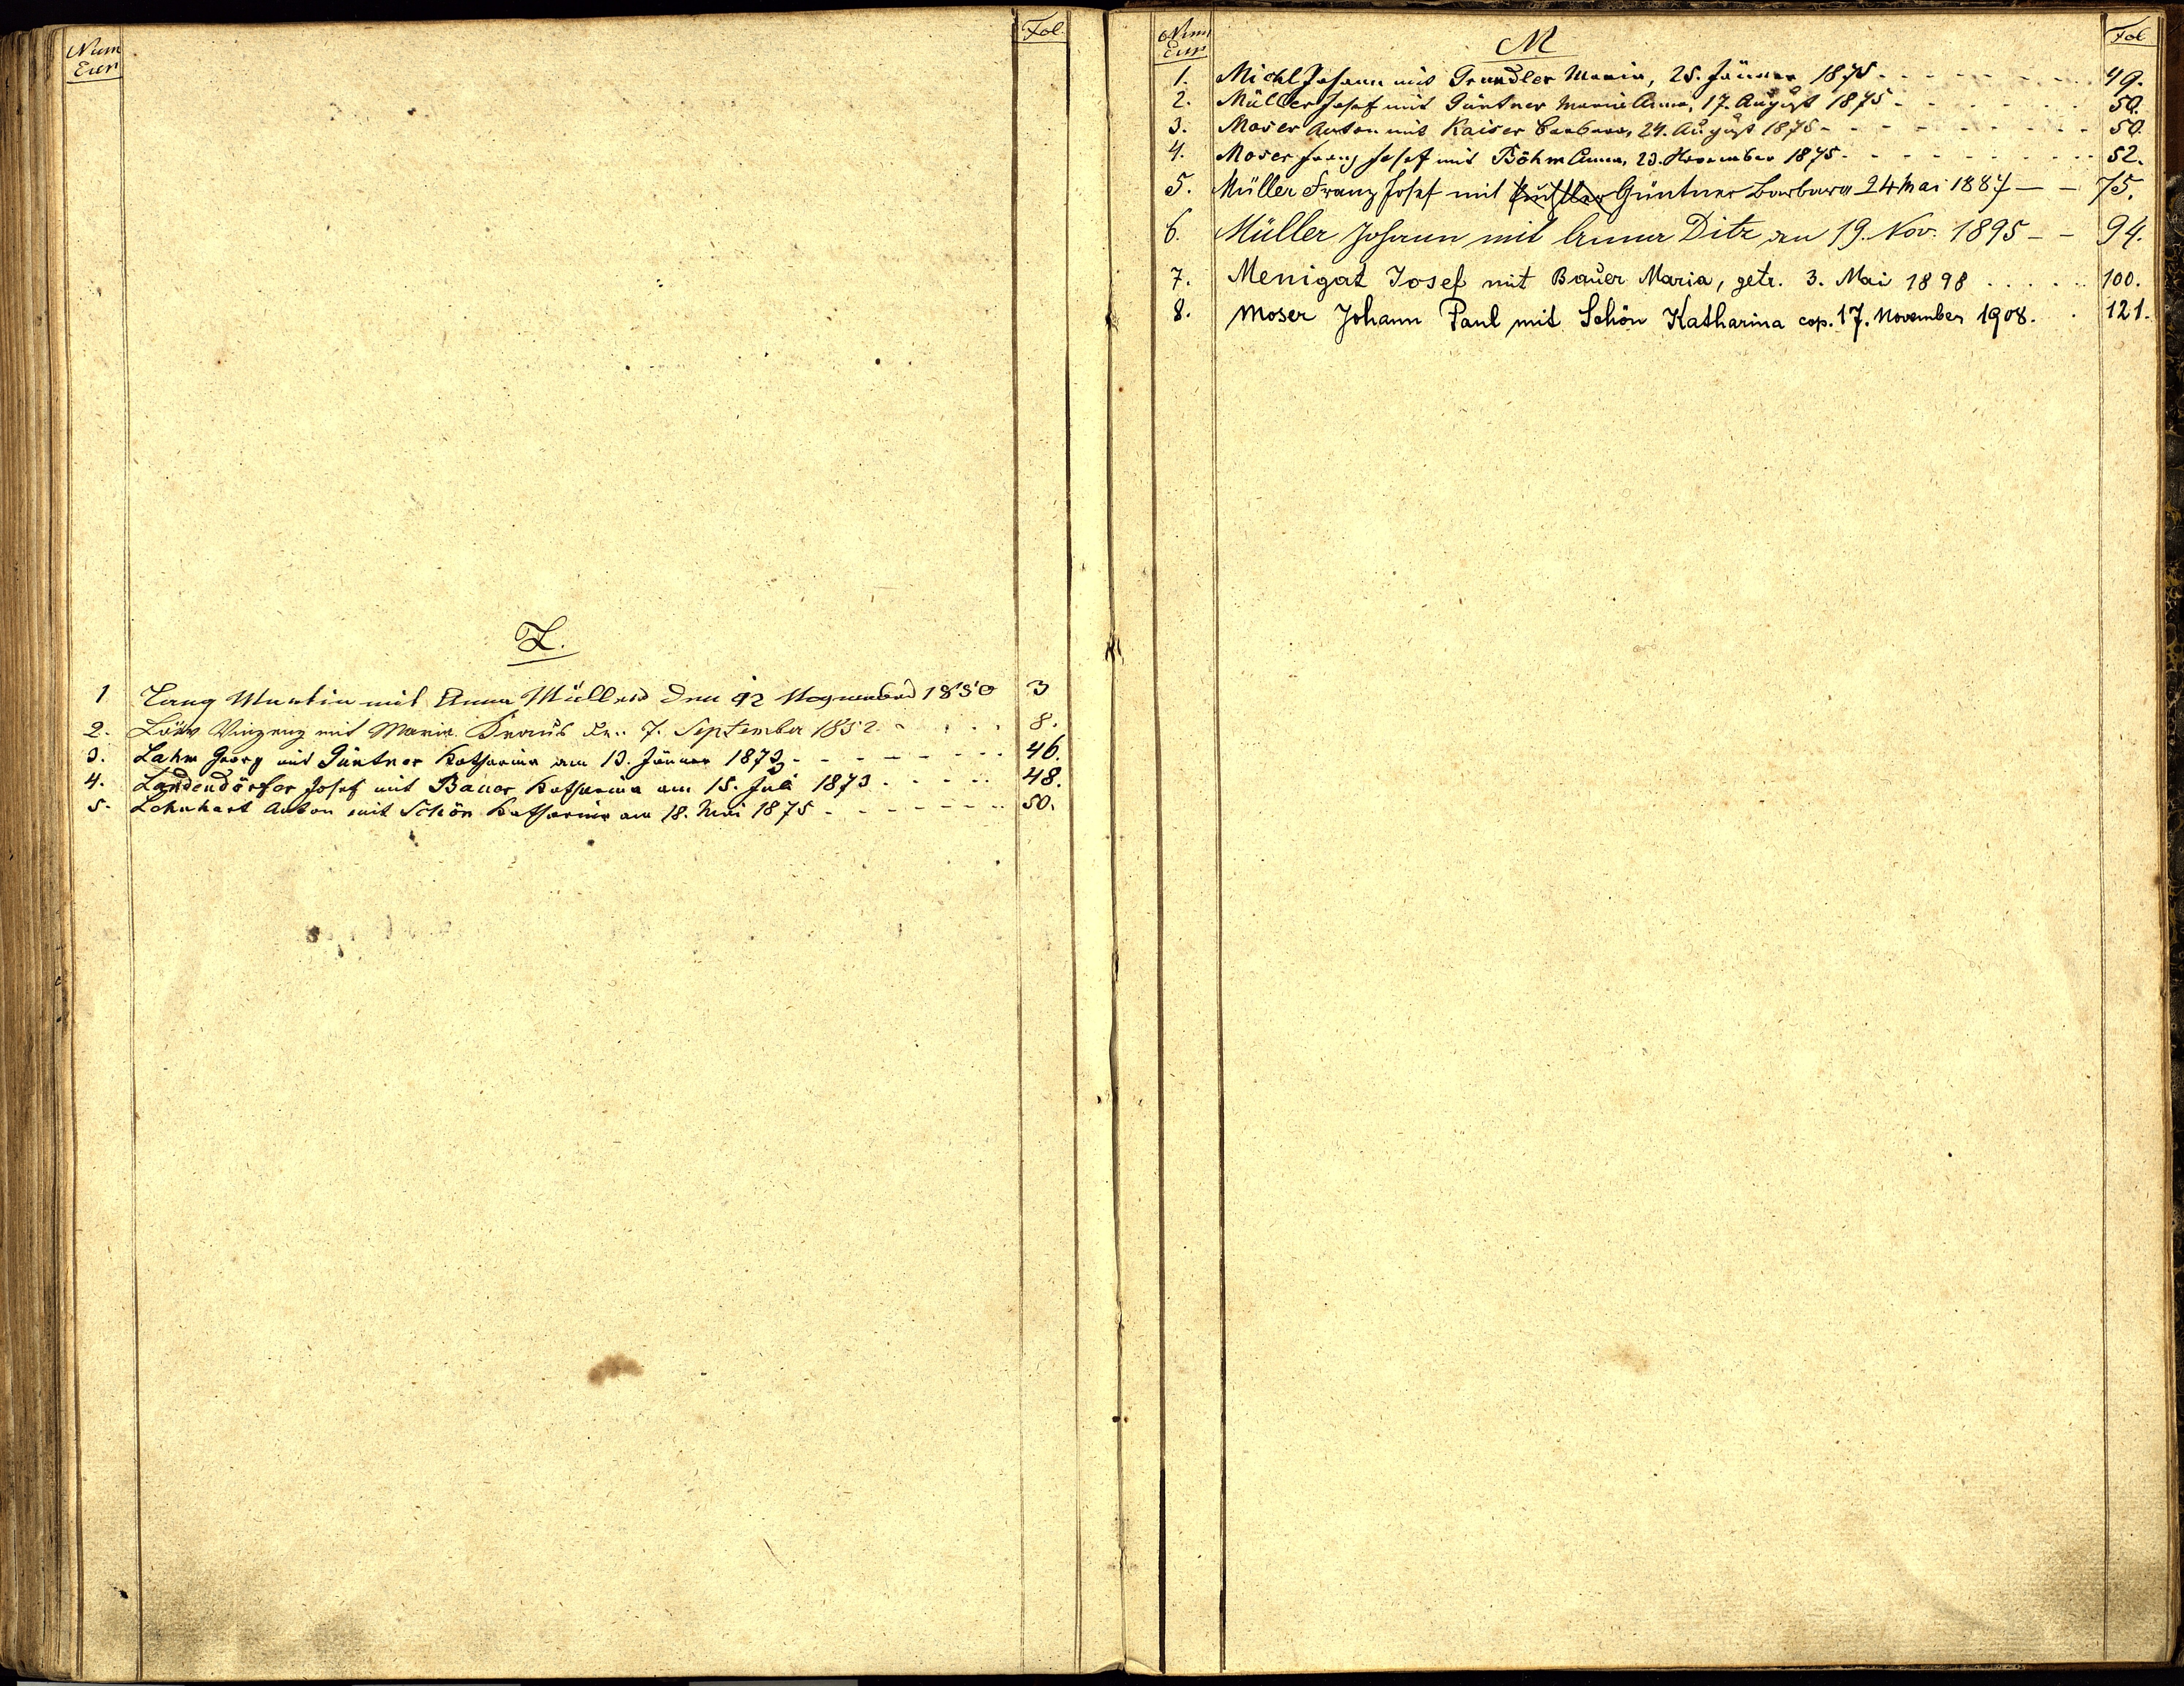 Num Fol.
Eur
L.
1 Lang Martin mit Anna Müller den 12 November 1850 3
2. Löw Vinzenz mit Maria Kraus den 7. September 1852 8.
3. Lahm Georg mit Güntner Katharina am 13. Jänner 1873 46.
4. Landendörfer Josef mit Bauer Katharina am 15. Juli 1873 48.
5. Lehnhart Anton mit Schön Katharina am 18. Mai 1875 50.
Num M Fol
Eur
1. Michl Johann mit Grundler Maria, 25. Jänner 1875 49.
2. Müller Josef mit Güntner Maria Anna, 17. August 1875 50.
3. Moser Anton mit Kaiser Barbara, 24. August 1875 50.
4. Moser Franz Josef mit Böhm Anna, 23. November 1875 52.
5. Müller Franz Josef mit Güntner Barbara 24 Mai 1887 75.
6. Müller Johann mit Anna Ditz den 19. Nov. 1895 94.
7. Menigat Josef mit Bauer Maria, getr. 3. Mai 1898 100.
8. Moser Johann Paul mit Schön Katharina cop. 17. November 1908. 121.